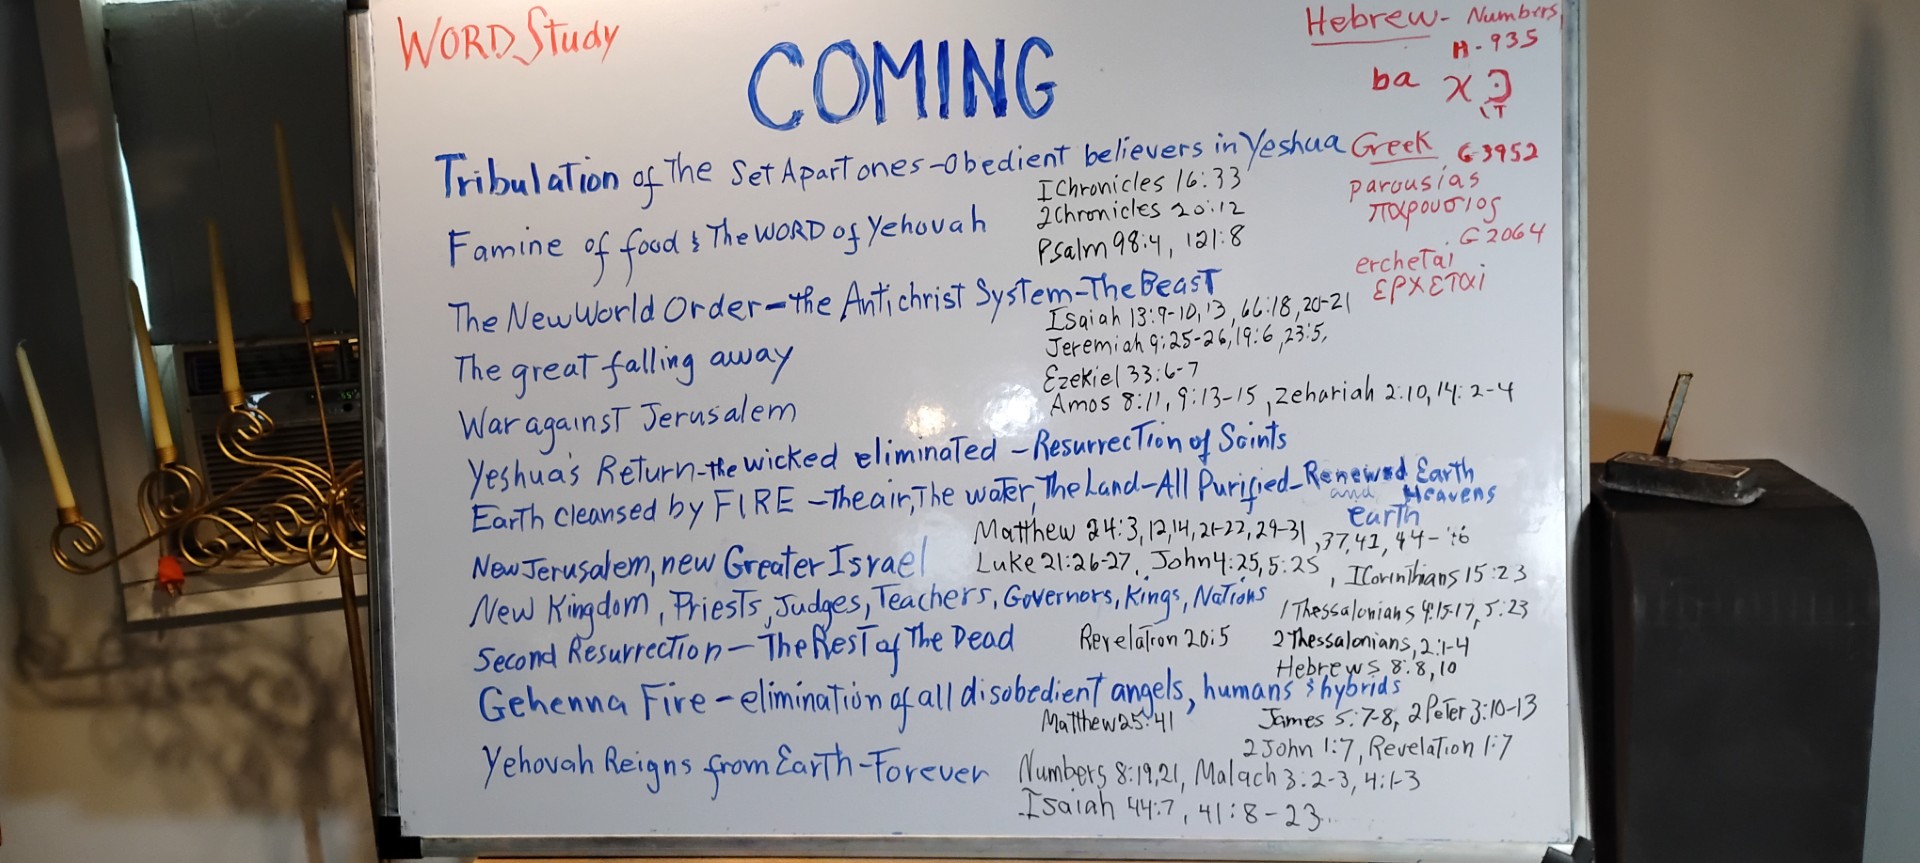 WORD Study
COMING
Hebrew- Numbers
H-935
ba
Tribulation of The Set Apart ones-Obedient believers in Yeshua
Greek G-3952
parousias
παρουσιος
G2064
erchetai
ερχεται
I Chronicles 16:33
2 Chronicles 20:12
Psalm 98:4, 121:8
Famine of food & The WORD of Yehovah
The New World Order-the Antichrist System-The Beast
Isaiah 13:9-10,13, 66:18,20-21
Jeremiah 9:25-26,19:6,23:5,
The great falling away
Ezekiel 33:6-7
Amos 8:11, 9:13-15, Zehariah 2:10,14:2-4
War against Jerusalem
Yeshua's Return-the wicked eliminated -Resurrection of Saints
Earth cleansed by FIRE -The air, The water, The Land-All Purified-Renewed Earth
and Heavens
earth
Matthew 24:3,12,14,21-22,29-31,37,42,44-46
New Jerusalem, new Greater Israel
Luke 21:26-27, John 4:25,5:25, I Corinthians 15:23
New Kingdom, Priests, Judges, Teachers, Governors, Kings, Nations
1 Thessalonians 4:15-17,5:23
Second Resurrection-The Rest of The Dead
Revelation 20:5
2 Thessalonians, 2:1-4
Hebrews 8:8,10
Gehenna Fire-elimination of all disobedient angels, humans & hybrids
Matthew 25:41
James 5:7-8, 2 Peter 3:10-13
2 John 1:7, Revelation 1:7
Yehovah Reigns from Earth-Forever
Numbers 8:19,21, Malach 3:2-3, 4:1-3
Isaiah 44:7, 41:8-23